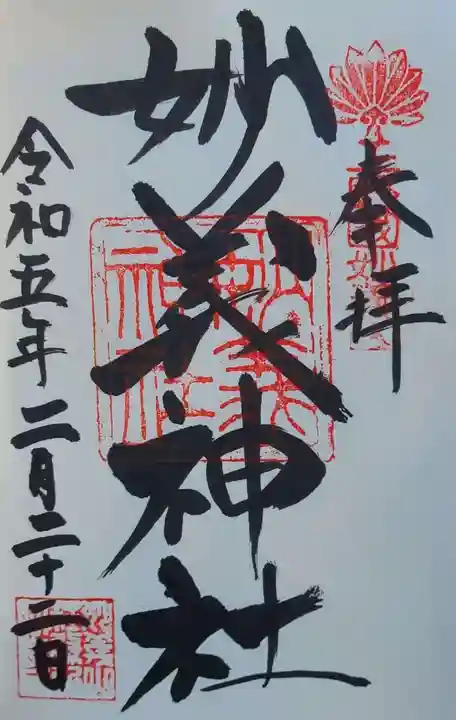 奉拝
妙義神社
令和五年二月二十二日